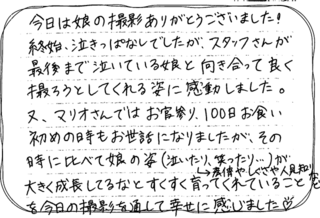 今日は娘の撮影ありがとうございました!
終始、泣きっぱなしでしたが、スタッフさんが
最後まで泣いている娘と向き合って良く
撮ろうとしてくれる姿に感動しました。
又、マリオさんではお宮参り、100日お食い
初めの時もお世話になりましたが、その
時に比べて娘の姿(泣いたり、笑ったり…)が
→表情やしぐさや人見知り
大きく成長してるなとすくすく育ってくれていることなど
を今日の撮影を通して幸せに感じました